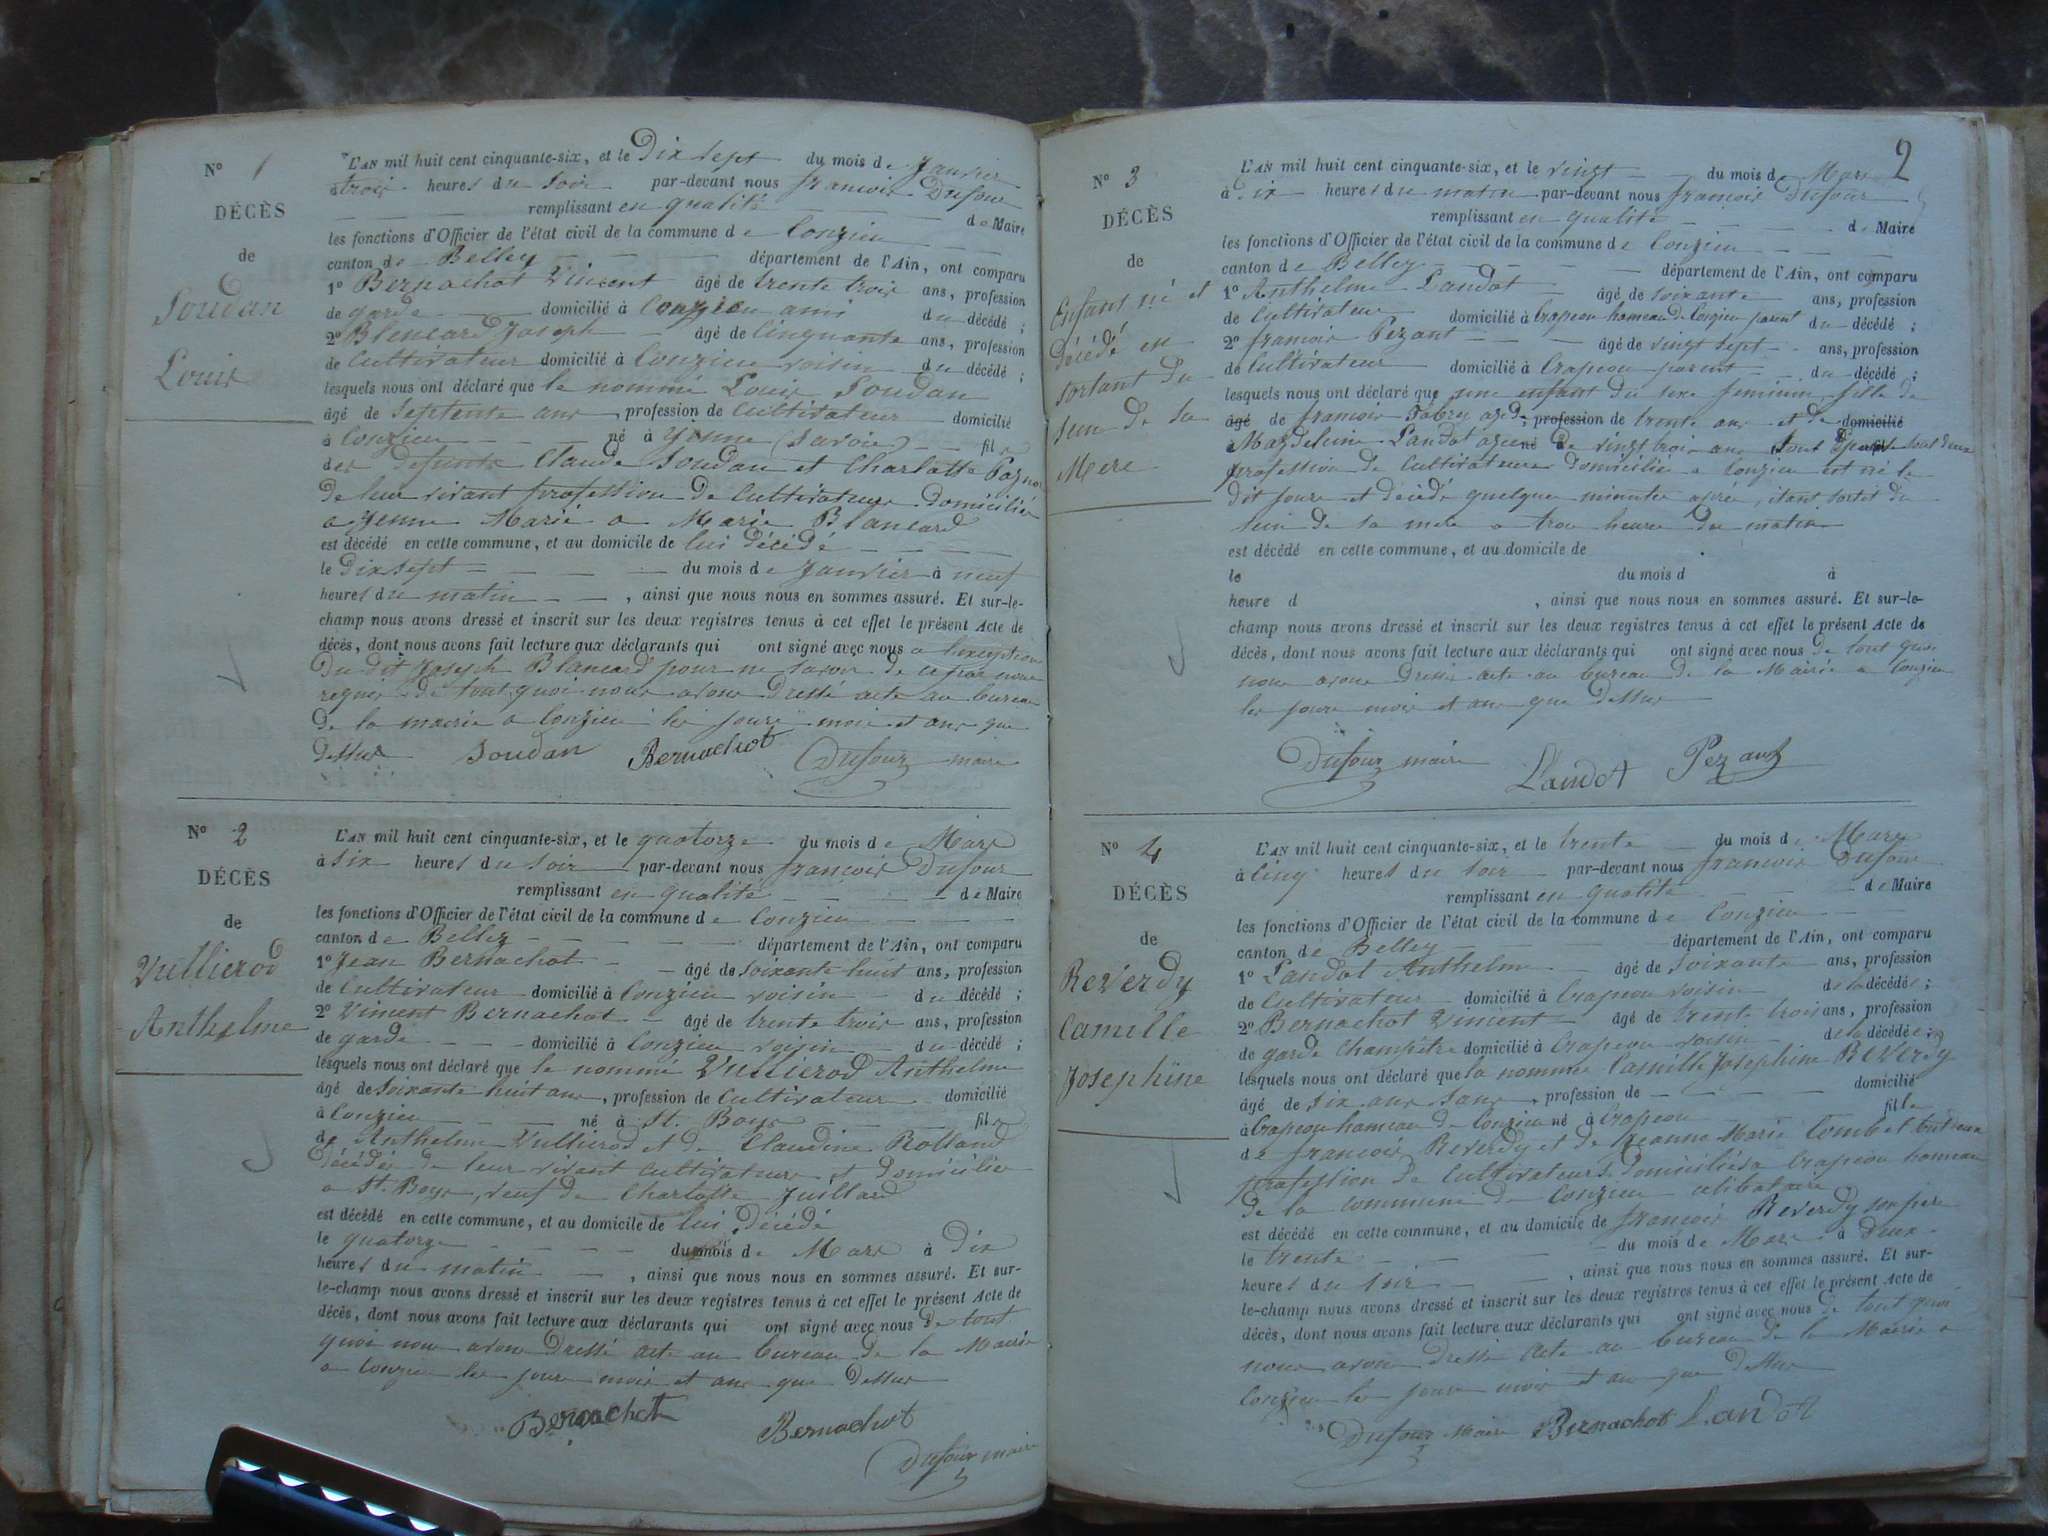 N° 1
DÉCÈS
de
Soudan
Louis
L'AN mil huit cent cinquante-six, et le Dix sept du mois de Janvier
à trois heures du soir par-devant nous francois Dufour
remplissant en qualité de Maire
les fonctions d'Officier de l'état civil de la commune de Conzieu
canton de Belley département de l'Ain, ont comparu
1° Bernachot Vincent âgé de trente trois ans, profession
de garde domicilié à Conzieu ami du décédé ;
2° Blancard Joseph âgé de Cinquante ans, profession
de Cultivateur domicilié à Conzieu voisin du décédé ;
lesquels nous ont déclaré que le nommé Louis Soudan
âgé de septente ans, profession de Cultivateur domicilié
à Conzieu né à Yenne (Savoie) fils
des defunts Claude Soudan et Charlotte
de leur vivant profession de Cultivateurs domiciliés
a Yenne Marié a Marie Blancard
est décédé en cette commune, et au domicile de lui décédé
le Dix sept du mois de Janvier à neuf
heures du matin, ainsi que nous nous en sommes assuré. Et sur-le-
champ nous avons dressé et inscrit sur les deux registres tenus à cet effet le présent Acte de
décès, dont nous avons fait lecture aux déclarants qui ont signé avec nous a l'exception
Du dit Joseph Blancard pour ne savoir de ce par nous
requis de tout quoi nous avons Dressé acte au bureau
de la mairie a Conzieu les jours mois et ans que
dessus Soudan Bernachot Dufour maire
N° 2
DÉCÈS
de
Vullierod
Anthelme
L'AN mil huit cent cinquante-six, et le quatorze du mois de Mars
à six heures du soir par-devant nous francois Dufour
remplissant en qualité de Maire
les fonctions d'Officier de l'état civil de la commune de Conzieu
canton de Belley département de l'Ain, ont comparu
1° Jean Bernachot âgé de soixante huit ans, profession
de Cultivateur domicilié à Conzieu voisin du décédé ;
2° Vincent Bernachot âgé de trente trois ans, profession
de garde domicilié à Conzieu voisin du décédé ;
lesquels nous ont déclaré que le nomme Vullierod Anthelme
âgé de soixante huit ans, profession de Cultivateur domicilié
à Conzieu né à St. Bois fils
de Anthelme Vullierod et de Claudine Rolland
décédés de leur vivant cultivateurs et domiciliés
a St. Bois, veuf de Charlotte Juillard
est décédé en cette commune, et au domicile de lui décédé
le quatorze du mois de Mars à dix
heures du matin, ainsi que nous nous en sommes assuré. Et sur-
le-champ nous avons dressé et inscrit sur les deux registres tenus à cet effet le présent Acte de
décès, dont nous avons fait lecture aux déclarants qui ont signé avec nous de tout
quoi nous avons Dressé acte au bureau de la Mairie
a Conzieu les jours mois et ans que dessus
Bernachot Bernachot
Dufour maire
2
N° 3
DÉCÈS
de
Enfant né et
décédé en
sortant du
sein de sa
Mere
L'AN mil huit cent cinquante-six, et le vingt du mois de Mars
à dix heures du matin par-devant nous francois Dufour
remplissant en qualité de Maire
les fonctions d'Officier de l'état civil de la commune de Conzieu
canton de Belley département de l'Ain, ont comparu
1° Anthelme Landot âgé de soixante ans, profession
de Cultivateur domicilié à Crapeou hameau de Conzieu parent du décédé ;
2° francois Pezant âgé de vingt sept ans, profession
de Cultivateur domicilié à Crapeou parent du décédé ;
lesquels nous ont déclaré que une enfant du sexe feminin, fille de
âgé de francois agé de profession de trente ans et de domicilié
à Magdeleine Landot agée né de vingt trois ans tous deux
profession de Cultivateurs domicilié a Conzieu est né le
dit jour et décédé quelques minutes après, étant sortit du
sein de sa mere a trois heures du matin
est décédé en cette commune, et au domicile de
le du mois d à
heure d , ainsi que nous nous en sommes assuré. Et sur-le-
champ nous avons dressé et inscrit sur les deux registres tenus à cet effet le présent Acte de
décès, dont nous avons fait lecture aux déclarants qui ont signé avec nous de tout quoi
nous avons Dressé acte au bureau de la Mairie a Conzieu
les jours mois et ans que dessus
Dufour maire Landot Pezant
N° 4
DÉCÈS
de
Reverdy
Camille
Josephine
L'AN mil huit cent cinquante-six, et le trente du mois de Mars
à cinq heures du soir par-devant nous francois Dufour
remplissant en qualité de Maire
les fonctions d'Officier de l'état civil de la commune de Conzieu
canton de Belley département de l'Ain, ont comparu
1° Landot Anthelme âgé de soixante ans, profession
de Cultivateur domicilié à Crapeou voisin de la décédée ;
2° Bernachot Vincent âgé de trente trois ans, profession
de garde champêtre domicilié à Crapeou voisin de la décédée ;
lesquels nous ont déclaré que la nommée Camille Josephine Reverdy
âgé de six ans sans, profession de domicilié
à Crapeou hameau de Conzieu né à Crapeou fille
de francois Reverdy et de Jeanne Marie Combet tout deux
profession de Cultivateurs domiciliés a Crapeou hameau
de la commune de Conzieu celibataire
est décédé en cette commune, et au domicile de francois Reverdy son pere
le trente du mois de Mars à deux
heures du soir, ainsi que nous nous en sommes assuré. Et sur-
le-champ nous avons dressé et inscrit sur les deux registres tenus à cet effet le présent Acte de
décès, dont nous avons fait lecture aux déclarants qui ont signé avec nous de tout quoi
nous avons dressé acte au bureau de la Mairie a
Conzieu les jours mois et ans que dessus
Dufour Maire Bernachot Landot